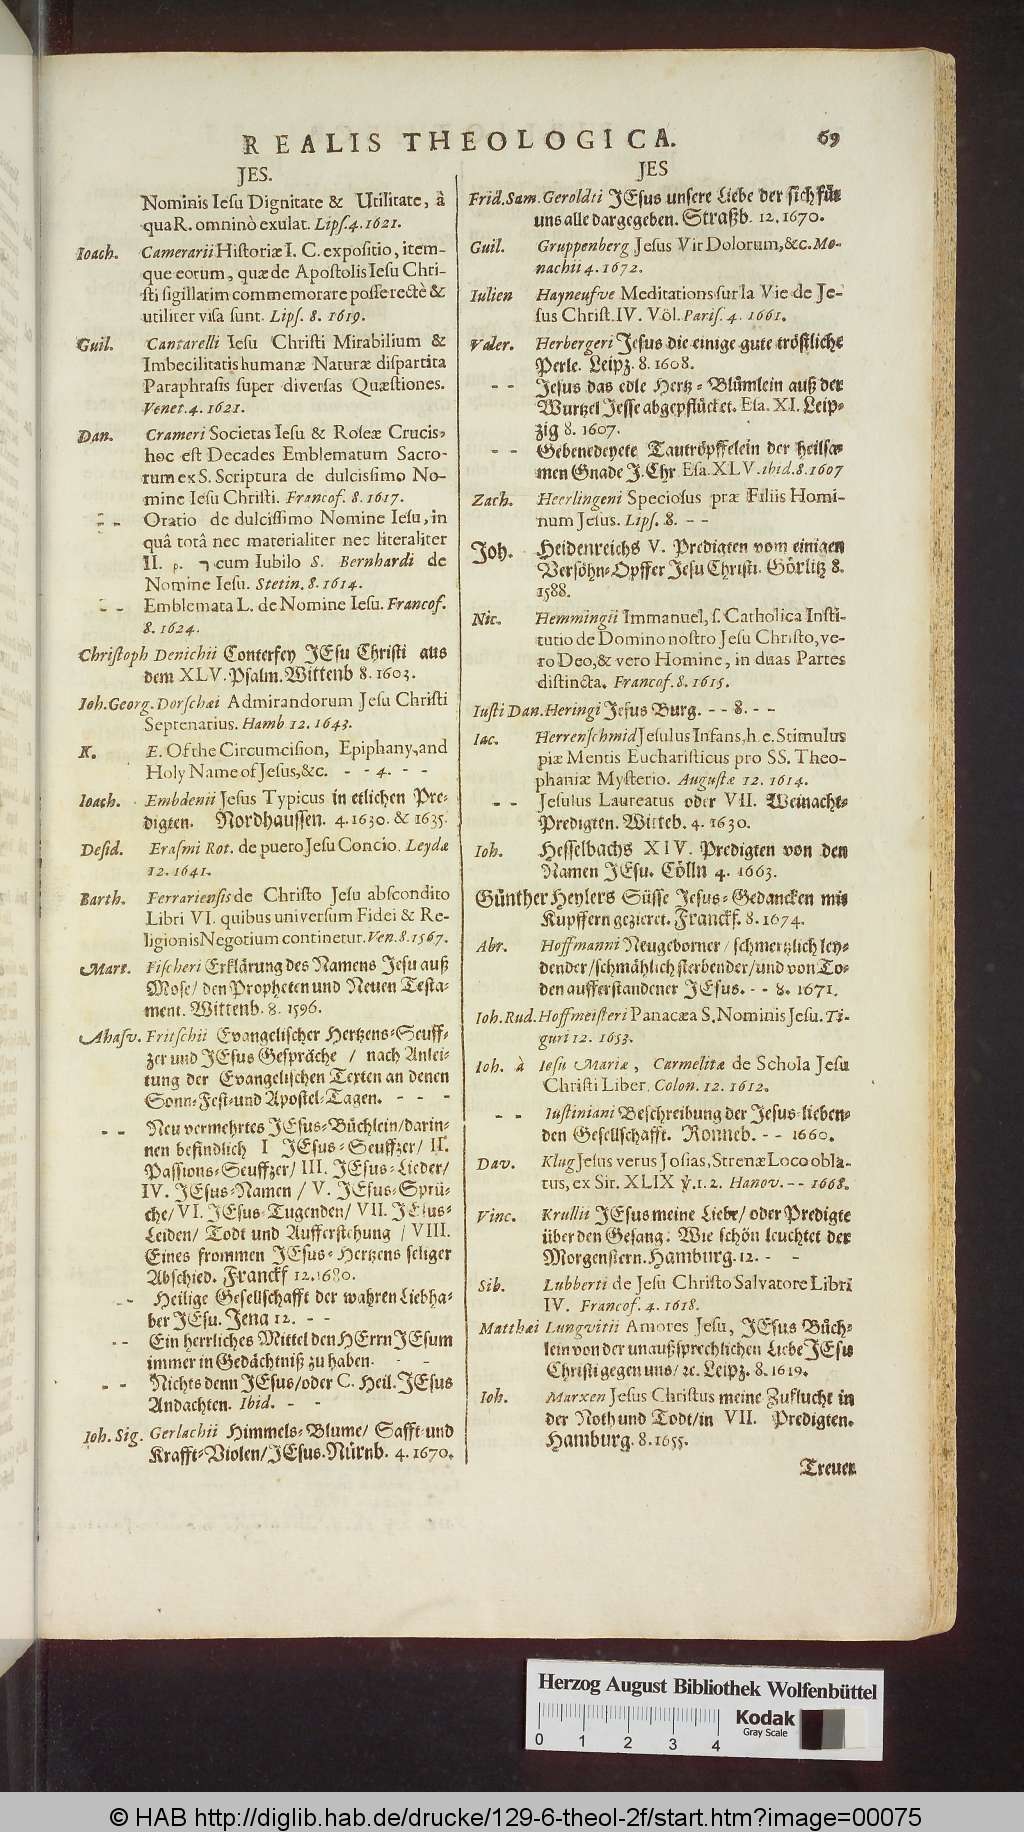 REALIS THEOLOGICA. 69
JES.
Nominis Iesu Dignitate & Utilitate, à
qua R. omninò exulat. Lips. 4. 1621.
Ioach. Camerarii Historiæ I. C. expositio, item-
que eorum, quæ de Apostolis Iesu Chri-
sti sigillatim commemorare posse rectè &
utiliter visa sunt. Lips. 8. 1619.
Guil. Cantarelli Iesu Christi Mirabilium &
Imbecilitatis humanæ Naturæ dispartita
Paraphrasis super diversas Quæstiones.
Venet. 4. 1621.
Dan. Crameri Societas Iesu & Roseæ Crucis,
hoc est Decades Emblematum Sacro-
rum ex S. Scriptura de dulcissimo No-
mine Iesu Christi. Francof. 8. 1617.
- - Oratio de dulcissimo Nomine Iesu, in
quâ totâ nec materialiter nec literaliter
II. p. cum Iubilo S. Bernhardi de
Nomine Iesu. Stetin. 8. 1614.
- - Emblemata L. de Nomine Iesu. Francof.
8. 1624.
Christoph Denichii Conterfey JEsu Christi aus
dem XLV. Psalm. Wittenb 8. 1603.
Ioh. Georg. Dorschæi Admirandorum Jesu Christi
Septenarius. Hamb 12. 1643.
K. E. Of the Circumcision, Epiphany, and
Holy Name of Jesus, &c. - - 4. - -
Ioach. Embdenii Jesus Typicus in etlichen Pre-
digten. Nordhaussen. 4. 1630. & 1635.
Desid. Erasmi Rot. de puero Jesu Concio. Leydæ
12. 1641.
Barth. Ferrariensis de Christo Jesu abscondito
Libri VI. quibus universum Fidei & Re-
ligionis Negotium continetur. Ven. 8. 1567.
Mart. Fischeri Erklärung des Namens Jesu auß
Mose/ den Propheten und Neuen Testa-
ment. Wittenb. 8. 1596.
Ahasv. Fritschii Evangelischer Hertzens-Seuff-
zer und JEsus Gespräche / nach Anlei-
tung der Evangelischen Texten an denen
Sonn-Fest-und Apostel-Tagen. - - -
- - Neu vermehrtes JEsus-Büchlein/darin-
nen befindlich I JEsus-Seuffzer/ II.
Passions-Seuffzer/ III. JEsus-Lieder/
IV. JEsus-Namen / V. JEsus-Sprü-
che/ VI. JEsus-Tugenden/ VII. JEsus-
Leiden/ Todt und Aufferstehung / VIII.
Eines frommen JEsus-Hertzens seliger
Abschied. Franckf 12. 1680.
- - Heilige Gesellschafft der wahren Liebha-
ber JEsu. Jena 12. - -
- - Ein herrliches Mittel den HErrn JEsum
immer in Gedächtniß zu haben. - -
- - Nichts denn JEsus/oder C. Heil. JEsus
Andachten. Ibid. - -
Ioh. Sig. Gerlachii Himmels-Blume/ Safft-und
Krafft-Violen/ JEsus. Nürnb. 4. 1670.
JES
Frid. Sam. Geroldti JEsus unsere Liebe der sich für
uns alle dargegeben. Straßb. 12. 1670.
Guil. Gruppenberg Jesus Vir Dolorum, &c. Mo-
nachii 4. 1672.
Iulien Hayneufve Meditations sur la Vie de Je-
sus Christ. IV. Vol. Paris. 4. 1661.
Valer. Herbergeri Jesus die einige gute tröstliche
Perle. Leipz. 8. 1608.
- - Jesus das edle Hertz-Blümlein auß der
Wurtzel Jesse abgepflücket. Esa. XI. Leip-
zig 8. 1607.
- - Gebenedeyete Tautröpffelein der heilsa-
men Gnade J. Chr Esa. XLV. ibid. 8. 1607
Zach. Heerlingeni Speciosus præ Filiis Homi-
num Jesus. Lips. 8. - -
Joh. Heidenreichs V. Predigten vom einigen
Versöhn-Opffer Jesu Christi. Görlitz 8.
1588.
Nic. Hemmingii Immanuel, s. Catholica Insti-
tutio de Domino nostro Jesu Christo, ve-
ro Deo, & vero Homine, in duas Partes
distincta. Francof. 8. 1615.
Iusti Dan. Heringi Jesus Burg. - - 8. - -
Iac. Herrenschmid Jesulus Infans, h. e. Stimulus
piæ Mentis Eucharisticus pro SS. Theo-
phaniæ Mysterio. Augustæ 12. 1614.
- - Jesulus Laureatus oder VII. Weinacht-
Predigten. Witteb. 4. 1630.
Ioh. Hesselbachs XIV. Predigten von den
Namen JEsu. Cölln 4. 1663.
Günther Heylers Süsse Jesus-Gedancken mit
Kupffern gezieret. Franckf. 8. 1674.
Abr. Hoffmanni Neugeborner/ schmertzlich ley-
dender/schmählich sterbender/und von To-
den aufferstandener JEsus. - - 8. 1671.
Ioh. Rud. Hoffmeisteri Panacæa S. Nominis Jesu. Ti-
guri 12. 1653.
Ioh. à Iesu Mariæ, Carmelitæ de Schola Jesu
Christi Liber. Colon. 12. 1612.
- - Iustiniani Beschreibung der Jesus-lieben-
den Gesellschafft. Ronneb. - - 1660.
Dav. Klug Jesus verus Josias, Strenæ Loco obla-
tus, ex Sir. XLIX ℣. 1. 2. Hanov. - - 1668.
Vinc. Krullii JEsus meine Liebe/ oder Predigte
über den Gesang: Wie schön leuchtet der
Morgenstern. Hamburg. 12. - -
Sib. Lubberti de Jesu Christo Salvatore Libri
IV. Francof. 4. 1618.
Matthæi Lungvitii Amores Jesu, JEsus Büch-
lein von der unaußsprechlichen Liebe JEsu
Christi gegen uns/ ꝛc. Leipz. 8. 1619.
Ioh. Marxen Jesus Christus meine Zuflucht in
der Noth und Todt/in VII. Predigten.
Hamburg. 8. 1655.
Treuer
Herzog August Bibliothek Wolfenbüttel
0 1 2 3 4
Kodak
Gray Scale
© HAB http://diglib.hab.de/drucke/129-6-theol-2f/start.htm?image=00075